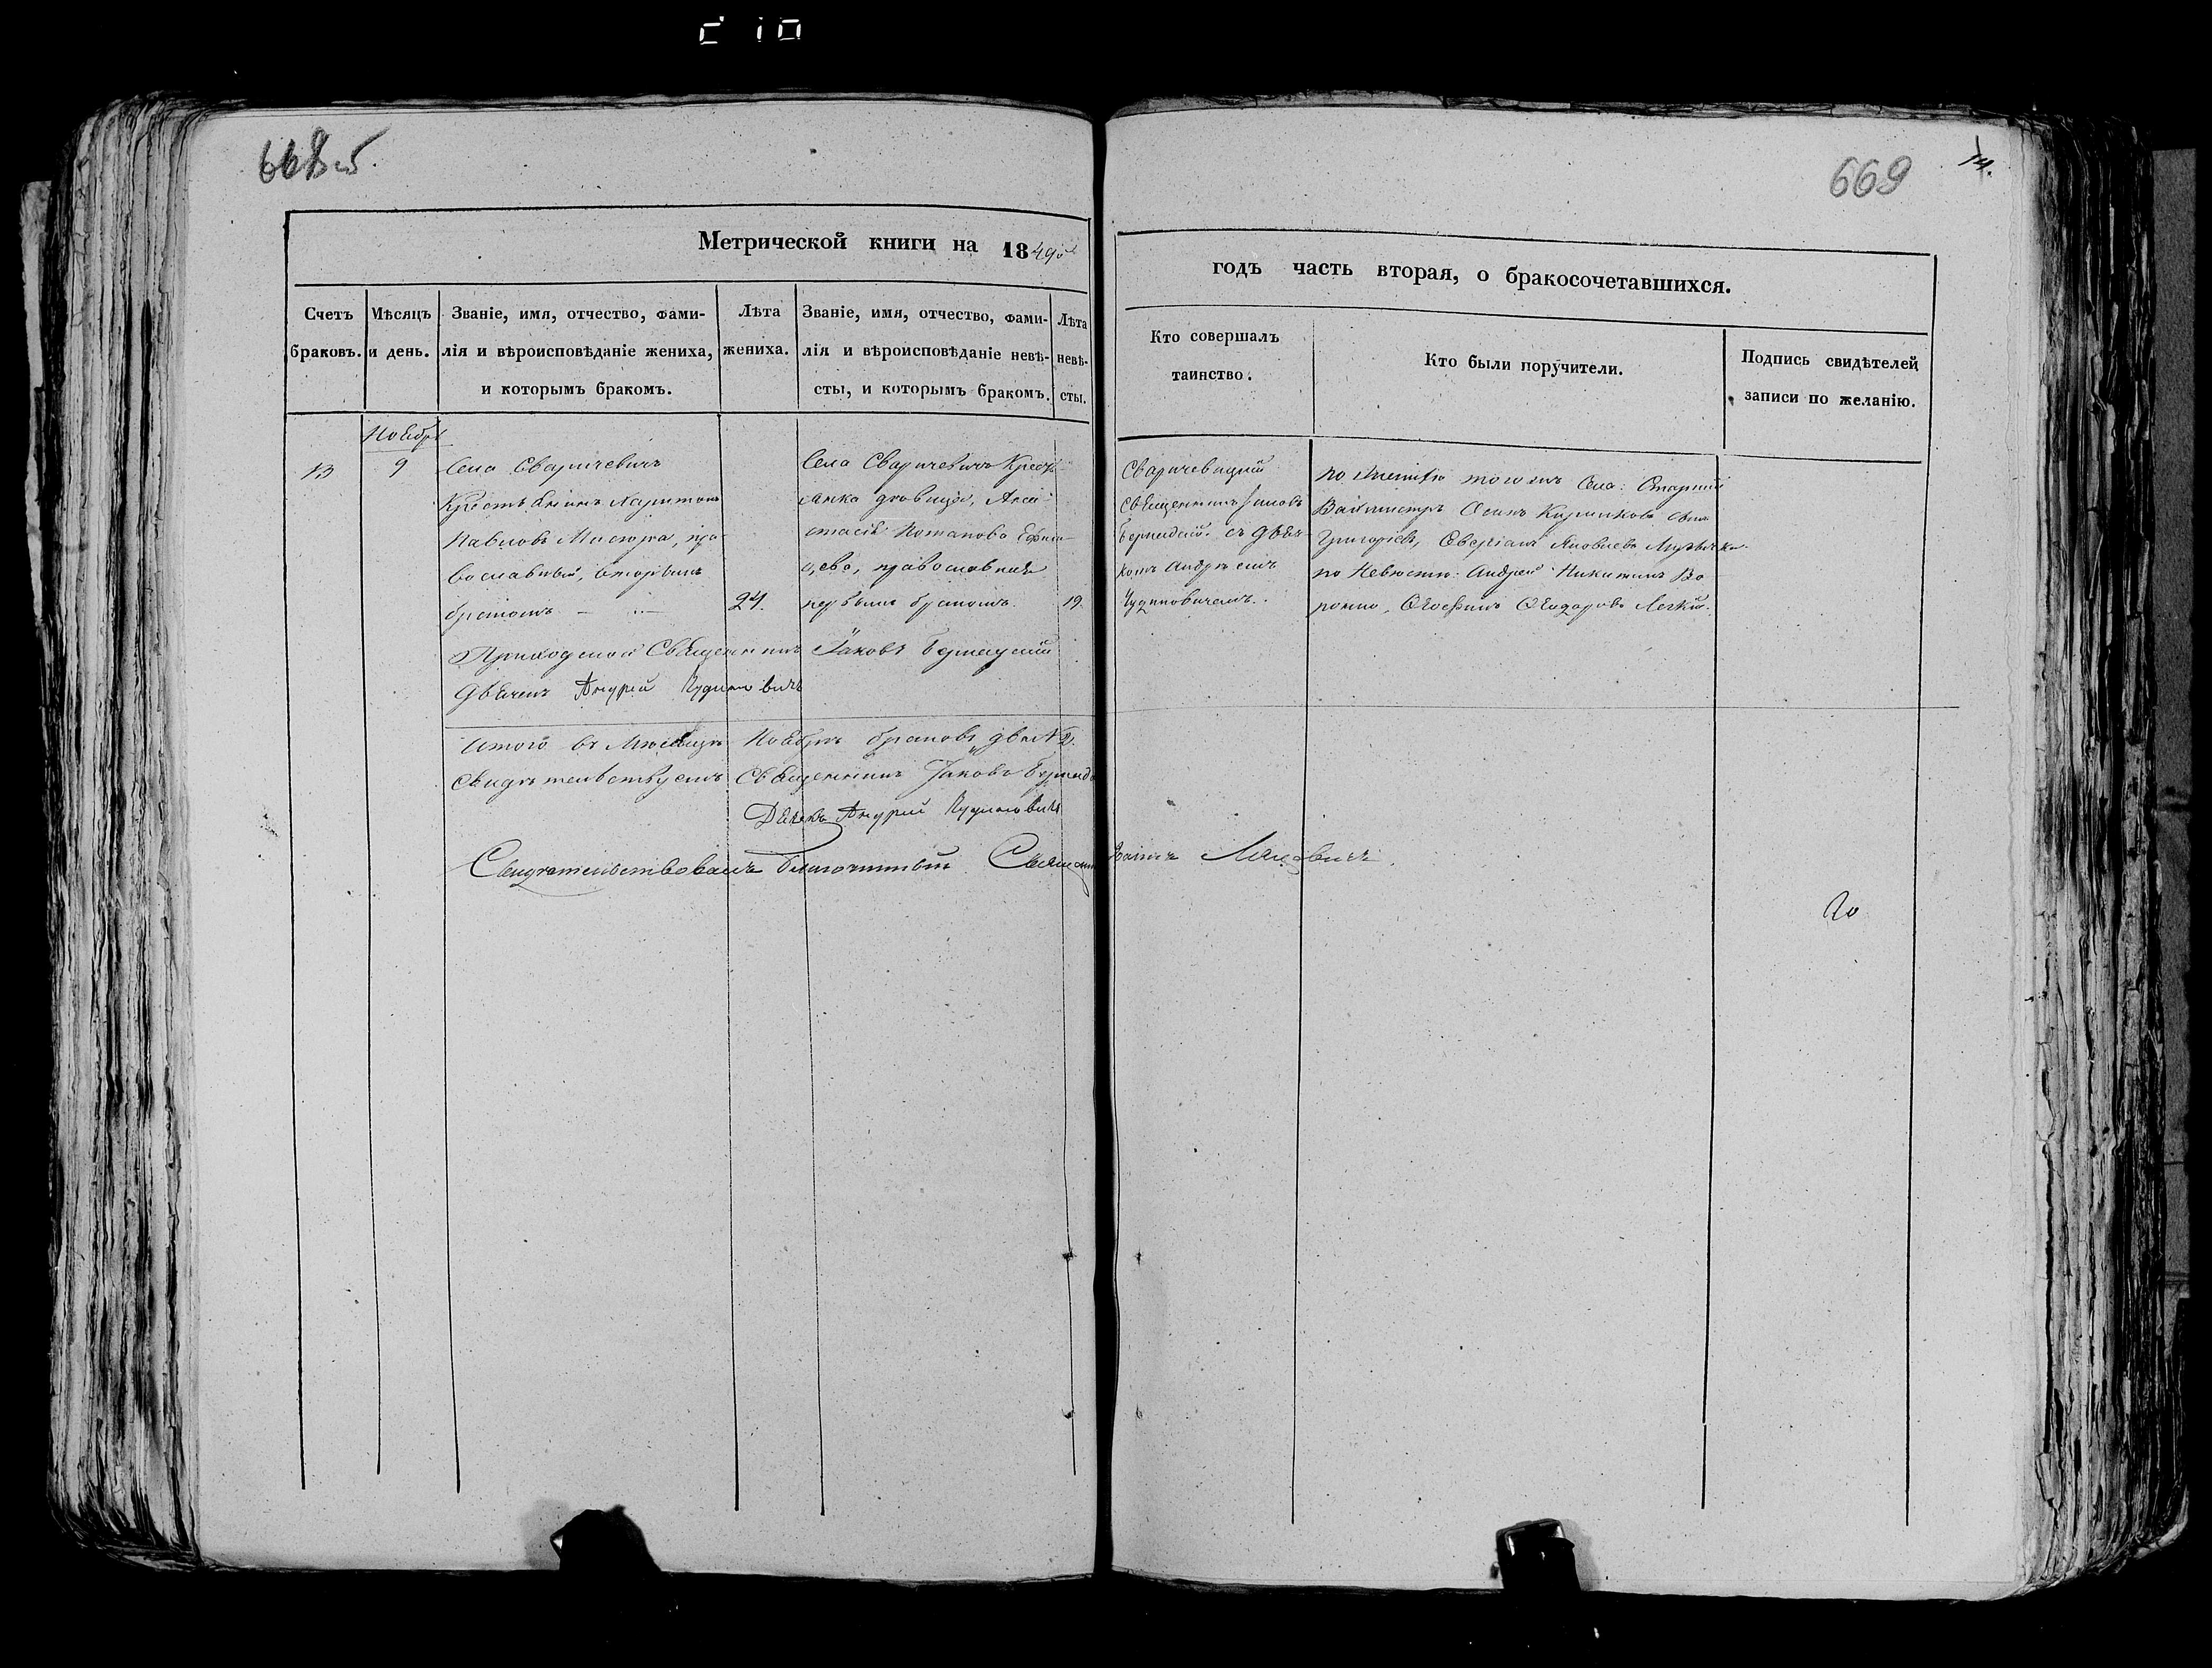 668об.
669
14.
Метрической книги на 1849й
годъ часть вторая, о бракосочетавшихся.
Счетъ браковъ.
Мѣсяцъ и день.
Званіе, имя, отчество, фами-
лія и вѣроисповѣданіе жениха,
и которымъ бракомъ.
Лѣта
жениха.
Званіе, имя, отчество, фами-
лія и вѣроисповѣданіе невѣ-
сты, и которымъ бракомъ.
Лѣта
невѣ-
сты.
Кто совершалъ
таинство.
Кто были поручители.
Подпись свидѣтелей
записи по желанію.
Ноября
13
9
Села Сваричевичъ
Крестьянинъ Харитонъ
Павловъ, пра-
вославный, вторымъ
бракомъ
24.
Села Сваричевичъ Кресть-
янка дѣвица, Анас-
тасія Потапова
православная
первымъ бракомъ.
19.
Сваричевицкій
Священникъ Іаковъ
съ дьяч-
комъ Андреемъ
по Женихѣ того жъ Села:
Осипъ
Григорьевъ, Яковлевъ
по Невѣстѣ: Андрей Никитинъ Во-
Ѳеодоровъ
Приходской Священникъ Іаковъ
Дьячекъ Андрей
Итого въ Мѣсяцѣ Ноябрѣ браковъ два № 2.
Свидѣтельствуемъ Священникъ Іаковъ
Дьячекъ Андрей
Свидѣтельствовалъ благочинный Священникъ Іоаннъ